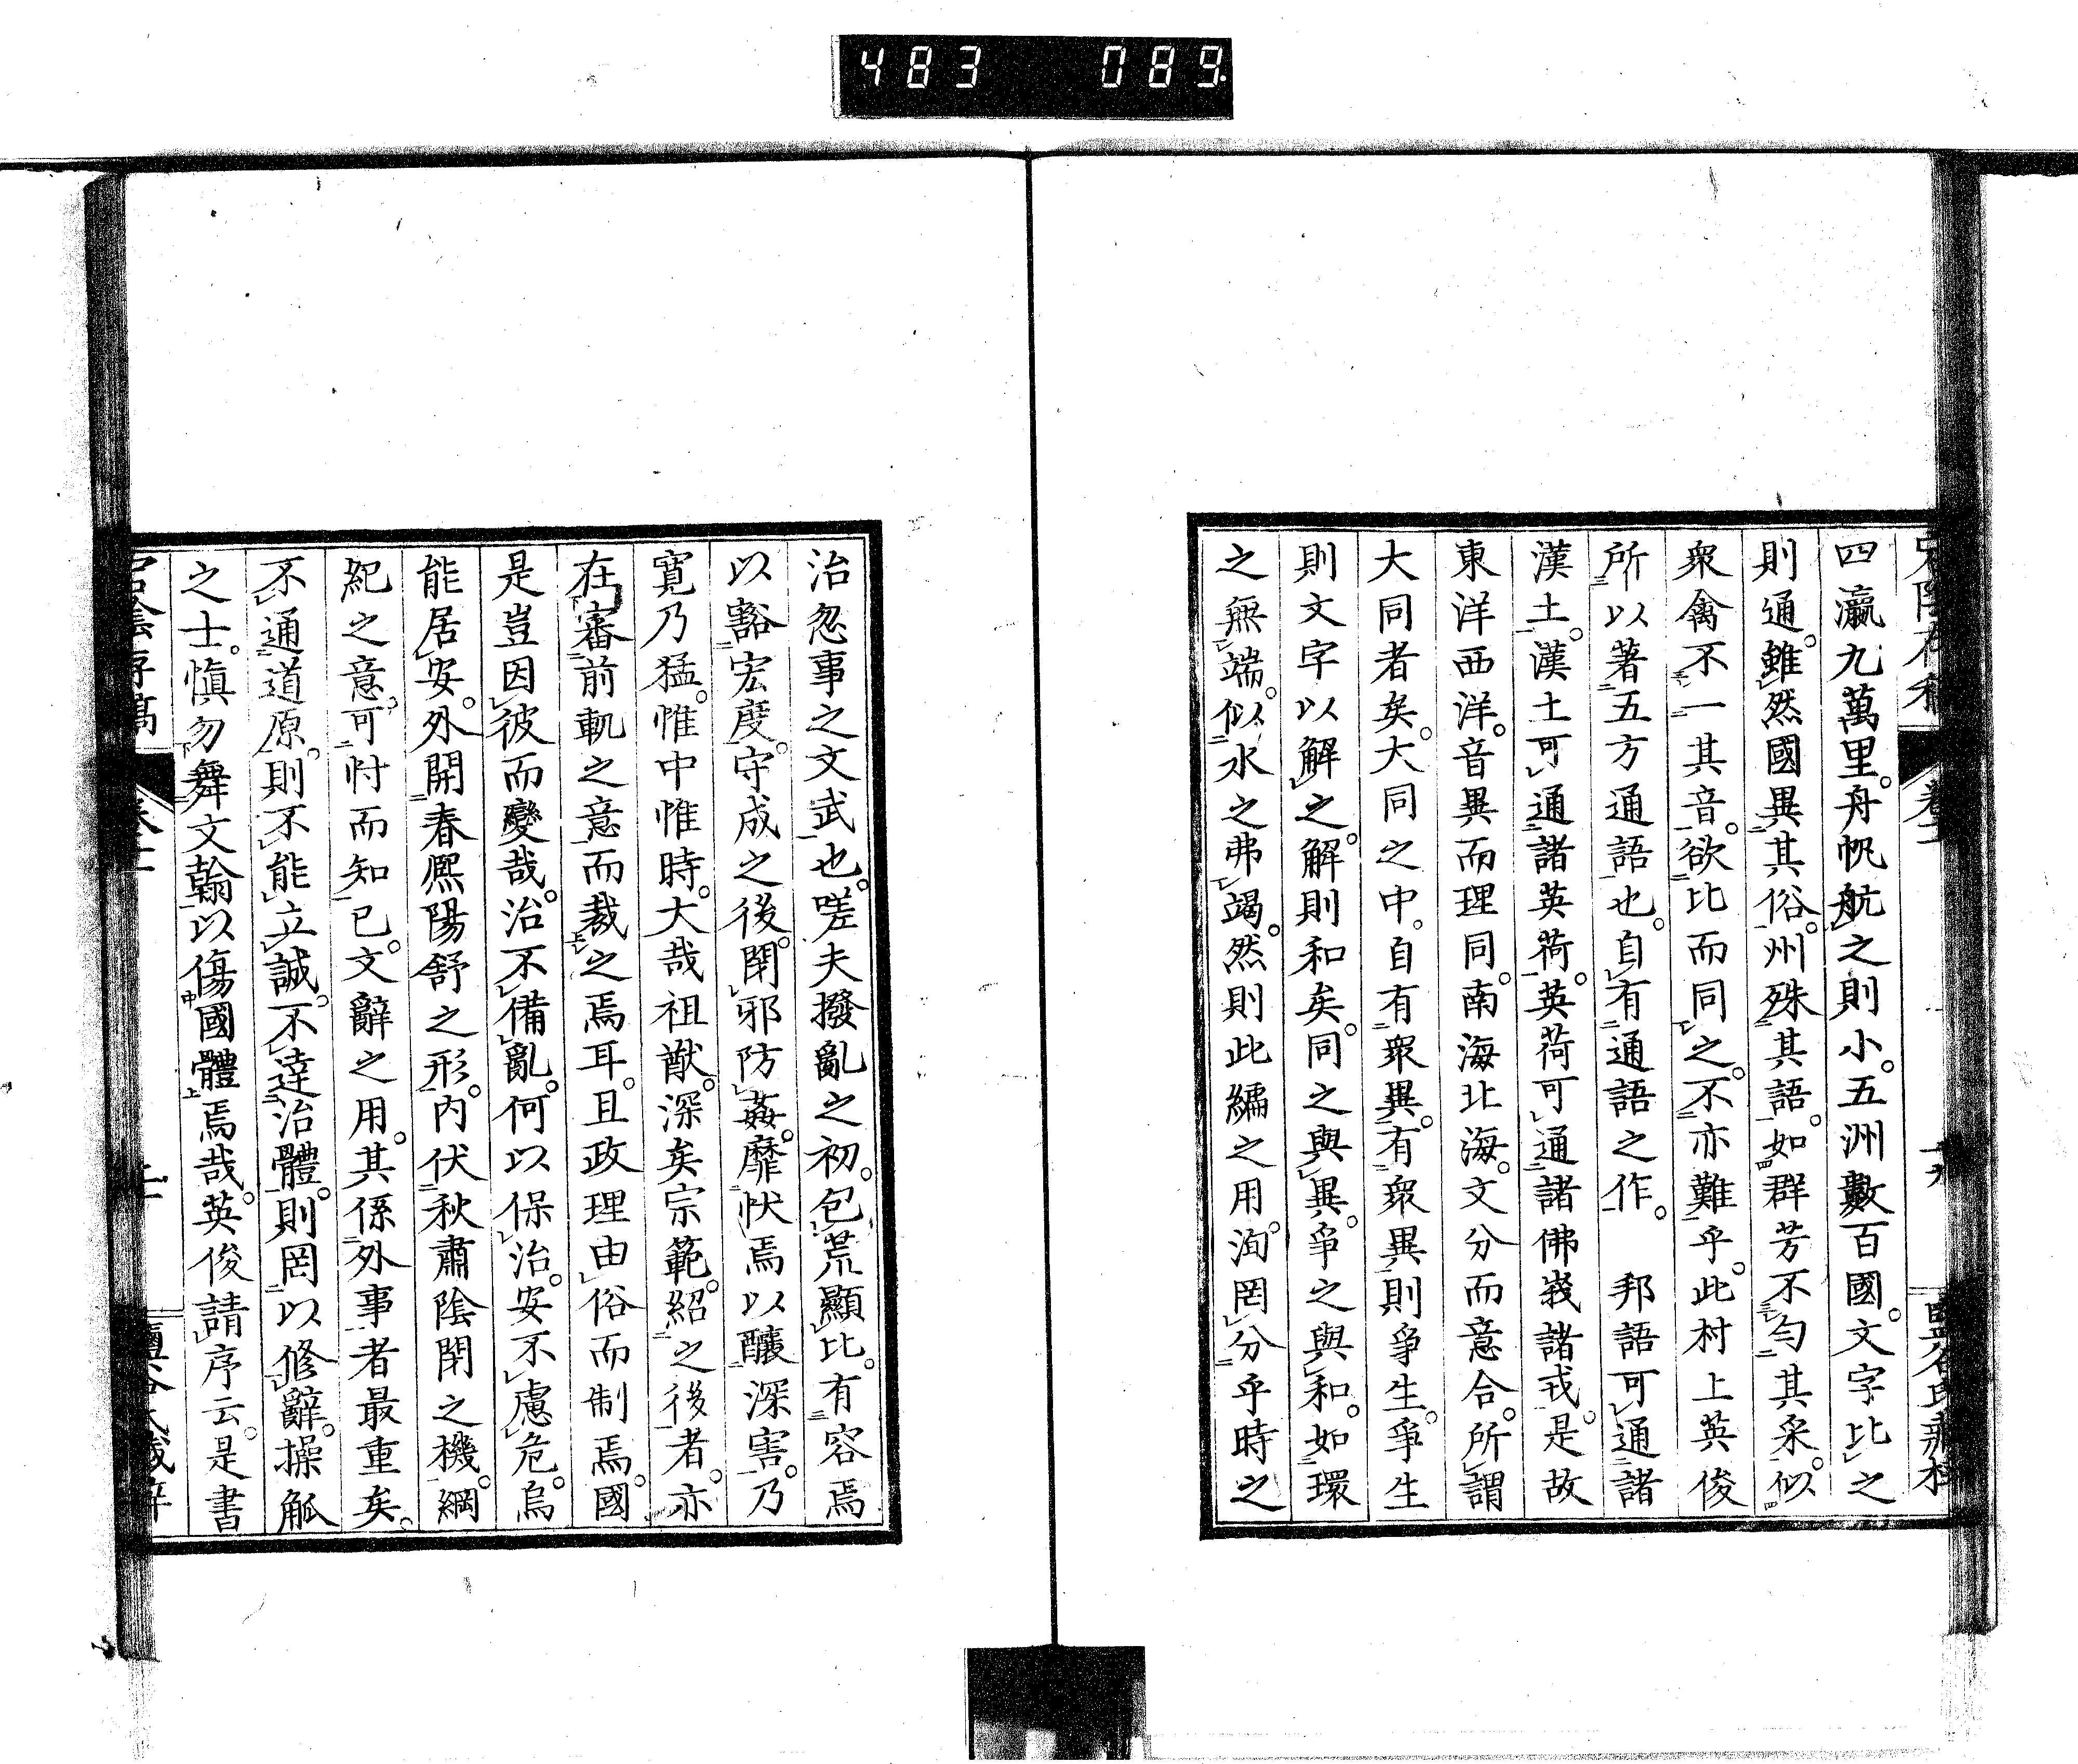 483 089
四瀛九萬里。舟帆航之則小。五洲數百國。文字比之
則通。雖然國異其俗。州殊其語。如群芳不匀其采。似
衆禽不一其音。欲比而同之。不亦難乎。此村上英俊
所以著五方通語也。自有通語之作。邦語可通諸
漢土。漢土可通諸英荷。英荷可通諸佛義諸戎。是故
東洋西洋。音異而理同。南海北海。文分而意合。所謂
大同者矣。大同之中。自有衆異。有衆異則爭生。爭生
則文字以解之。解則和矣。同之與異。爭之與和。如環
之無端。似水之弗竭。然則此編之用。洵罔分乎時之
治忽事之文武也。嗟夫撥亂之初。包荒顯比。有容焉
以豁宏度。守成之後。閑邪防姦。靡忕焉以釀深害。乃
寬乃猛。惟中惟時。大哉祖猷。深矣宗範。紹之後者。亦
在審前軌之意而裁之焉耳。且政理由俗而制焉。國
是豈因彼而變哉。治不備亂。何以保治。安不慮危。烏
能居安。外開春熙陽舒之形。内伏秋肅陰閉之機。綱
紀之意。可忖而知已。文辭之用。其係外事者最重矣。
不通道原。則不能立誠。不達治體。則罔以修辭。操觚
之士。愼勿舞文翰以傷國體焉哉。英俊請序云。是書